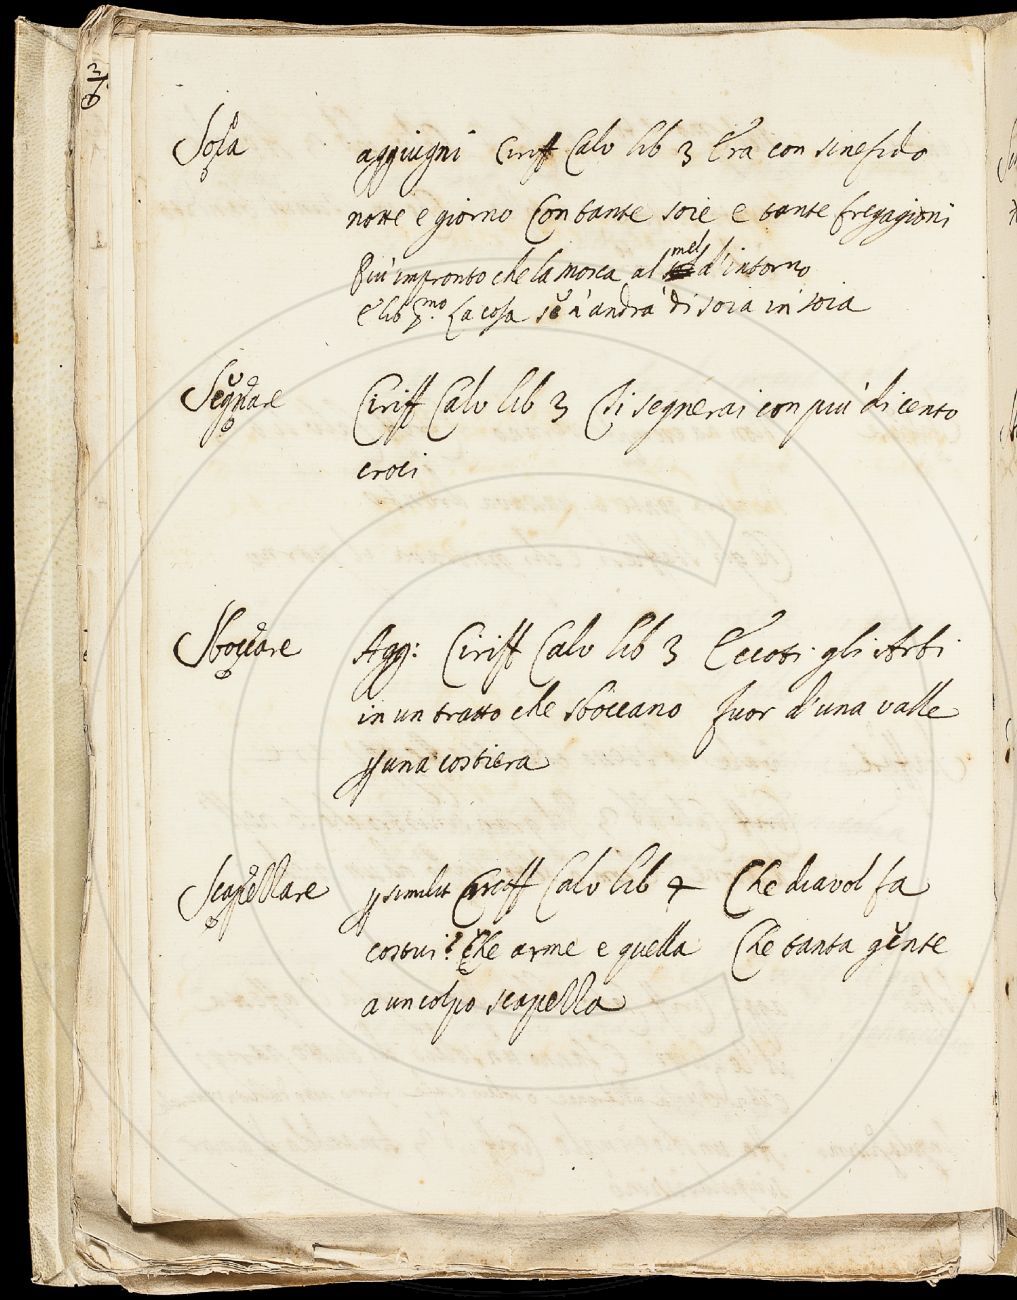 Soia aggiugni Ciriff Calv lib 3 Era con sinefido
notte e giorno Con tante soie e tante fregagioni
Più impronto che la mosca al mel d'intorno
E lib pmo. La cosa se n'andrà di soia in soia
Segnare Ciriff Calv lib 3 Ti segnerai con più di cento
croci
Sboccare Agg: Ciriff Calv lib 3 Eccoti gli Arbi
in un tratto che sboccano fuor d'una valle
p una costiera
Scapellare p similit Ciriff Calv lib 4 Che diavol fa
costui? Che arme e quella Che tanta gente
a un colpo scapella